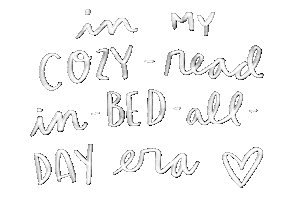 in MY
COZY - read
in - BED - all -
DAY era